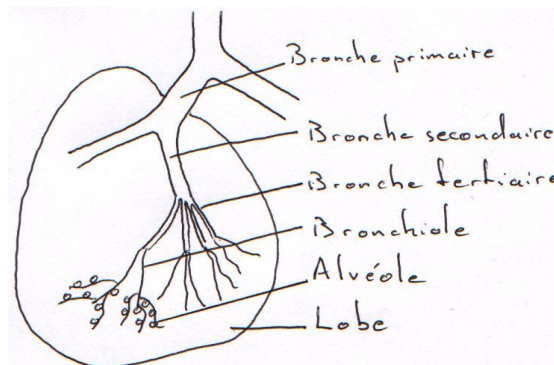 Bronche primaire
Bronche secondaire
Bronche tertiaire
Bronchiole
Alvéole
Lobe